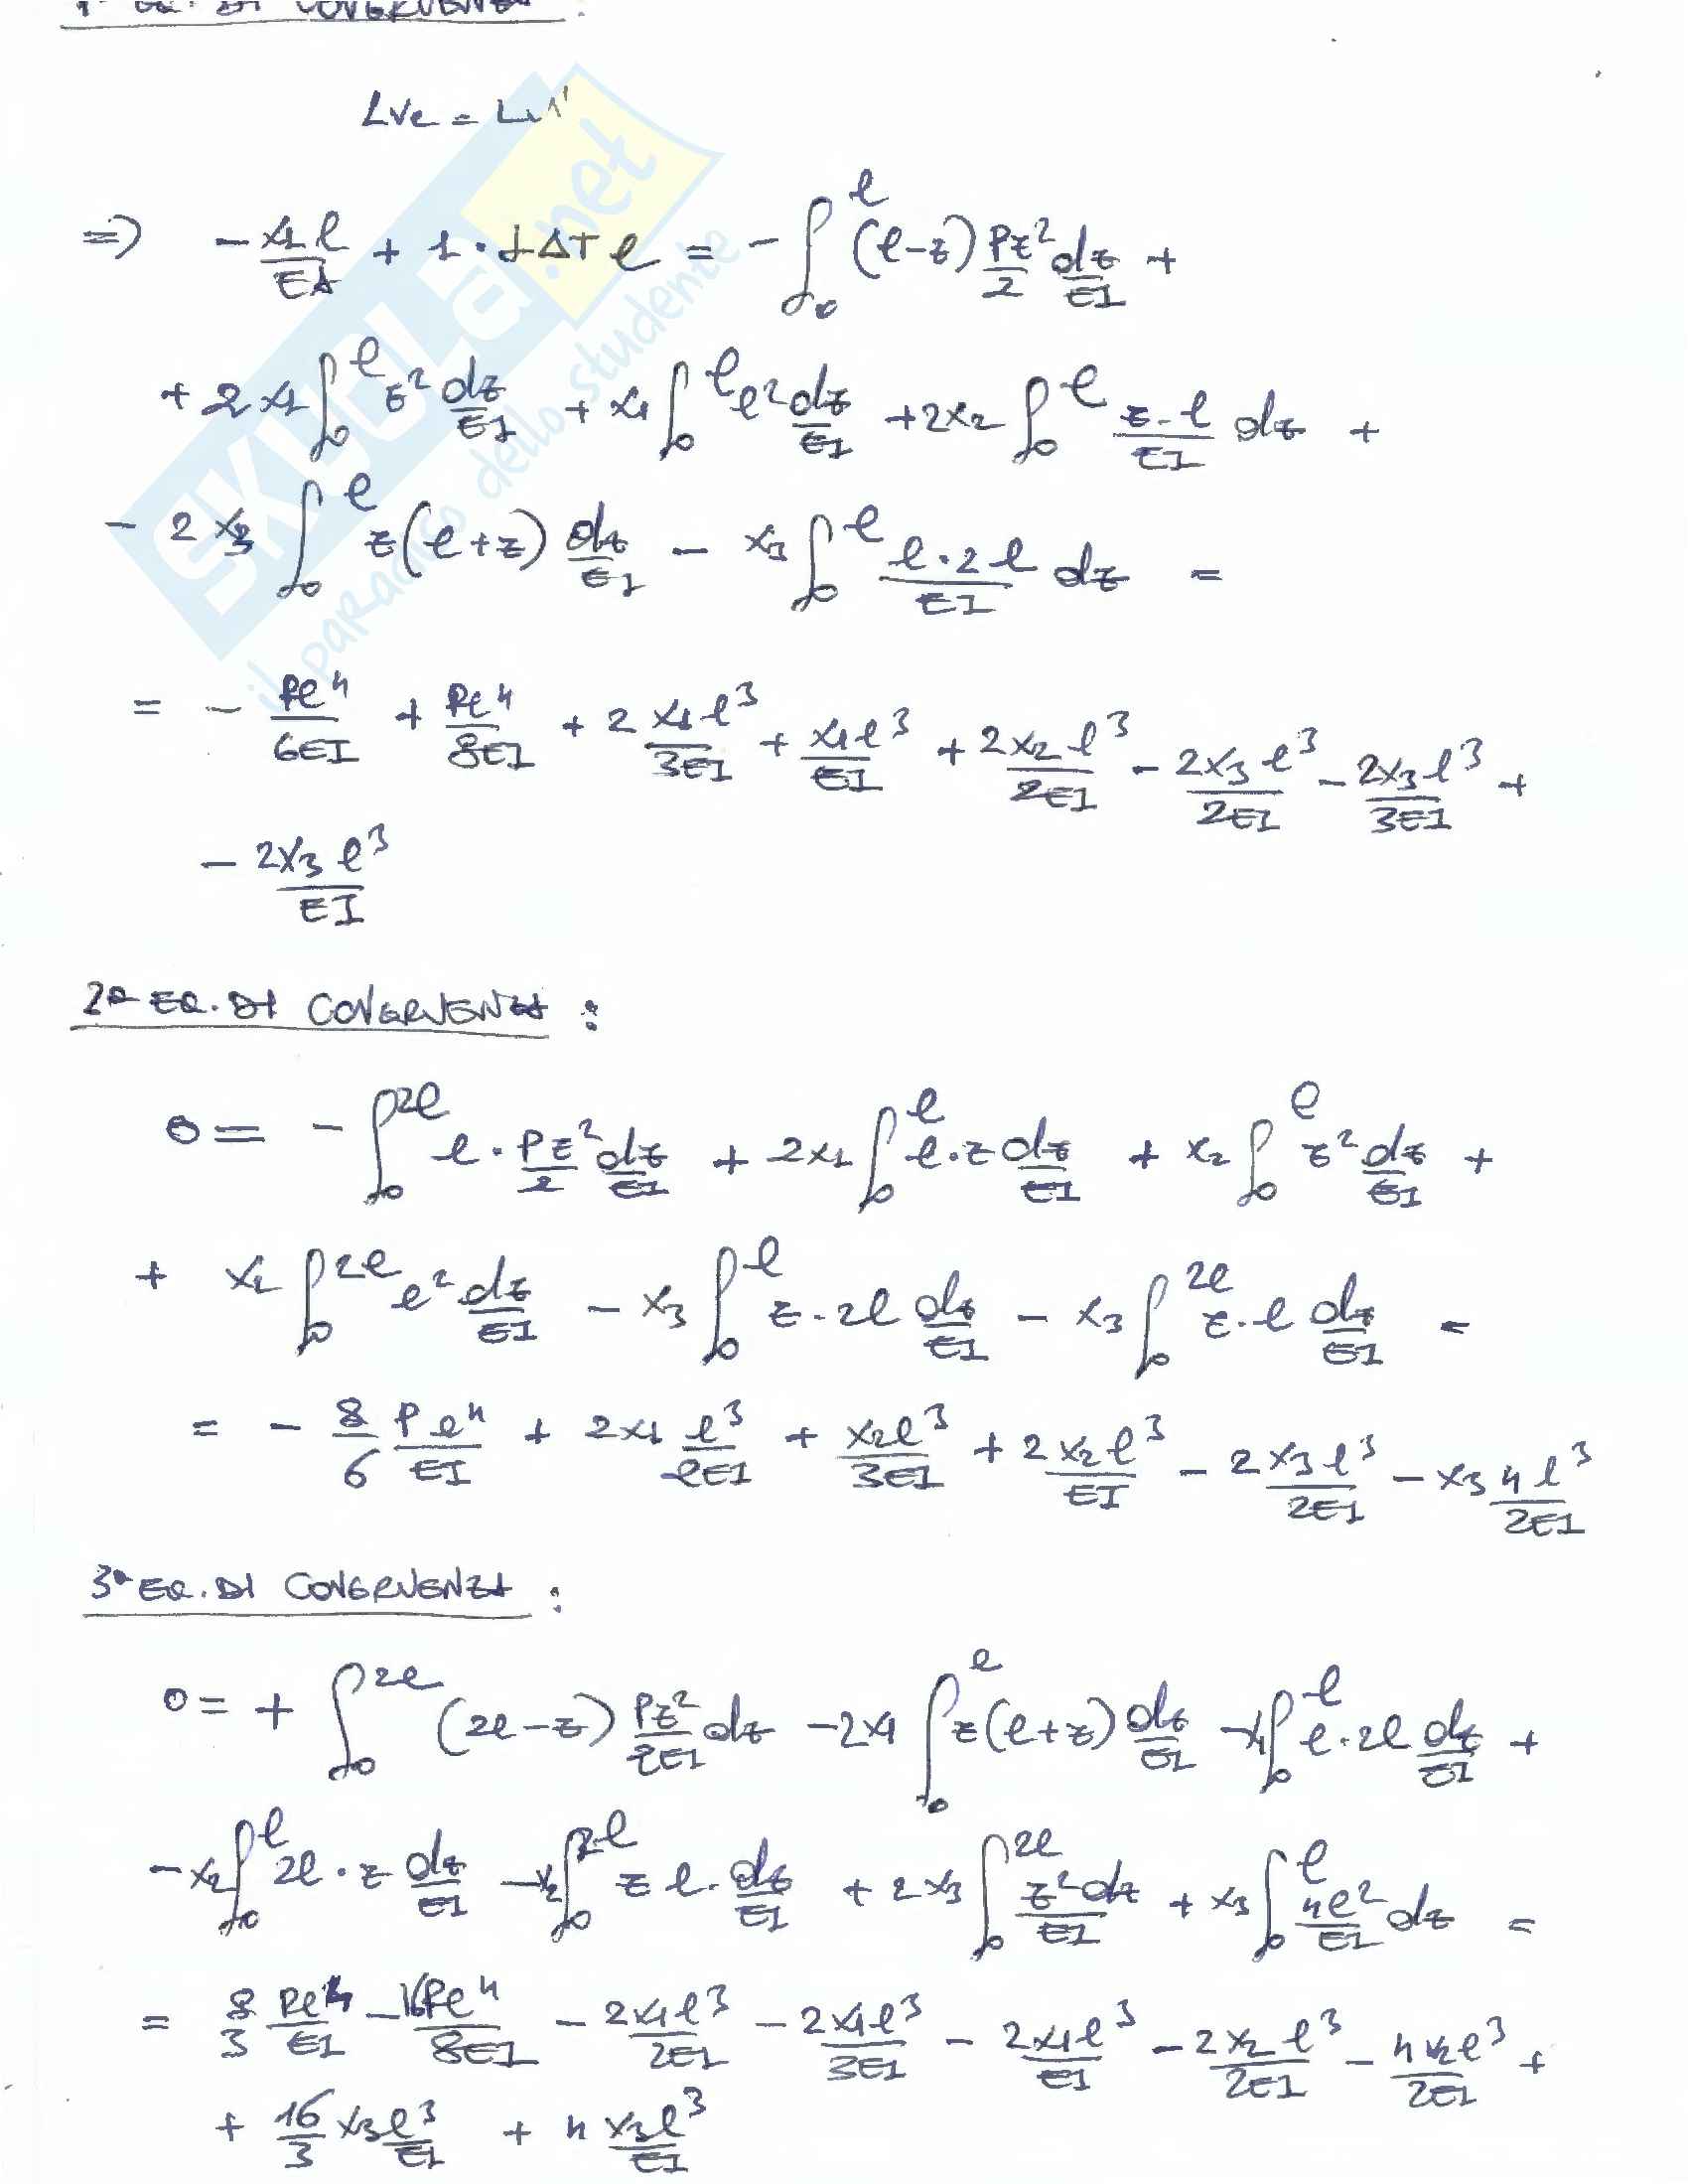 1ª EQ. DI CONGRUENZA :
Lve = Lvi
=> - x₁l/EA + 1·αΔT l = - ∫₀^l (l-z) pz²/2 dz/EI +
+ 2x₁ ∫₀^l z² dz/EI + x₁ ∫₀^l l² dz/EI + 2x₂ ∫₀^l z·l/EI dz +
- 2x₃ ∫₀^l z(l+z) dz/EI - x₃ ∫₀^l l·2l/EI dz =
= - pl⁴/6EI + pl⁴/8EI + 2x₁l³/3EI + x₁l³/EI + 2x₂l³/2EI - 2x₃l³/2EI - 2x₃l³/3EI +
- 2x₃l³/EI
2ª EQ. DI CONGRUENZA :
0 = - ∫₀^2l l·pz²/2 dz/EI + 2x₁ ∫₀^l l·z dz/EI + x₂ ∫₀^l z² dz/EI +
+ x₂ ∫₀^2l l² dz/EI - x₃ ∫₀^l z·2l dz/EI - x₃ ∫₀^2l z·l dz/EI =
= - 8/6 pl⁴/EI + 2x₁ l³/2EI + x₂l³/3EI + 2x₂l³/EI - 2x₃l³/2EI - x₃ 4l³/2EI
3ª EQ. DI CONGRUENZA :
0 = + ∫₀^2l (2l-z) pz²/2EI dz - 2x₁ ∫₀^l z(l+z) dz/EI - x₁ ∫₀^l l·2l dz/EI +
- x₂ ∫₀^l 2l·z dz/EI - x₂ ∫₀^2l z l· dz/EI + 2x₃ ∫₀^2l z² dz/EI + x₃ ∫₀^l 4l²/EI dz =
= 8/3 pl⁴/EI - 16pl⁴/8EI - 2x₁l³/2EI - 2x₁l³/3EI - 2x₁l³/EI - 2x₂l³/2EI - 4x₂l³/2EI +
+ 16/3 x₃l³/EI + 4 x₃l³/EI
SKUOLA.net
il paradiso dello studente